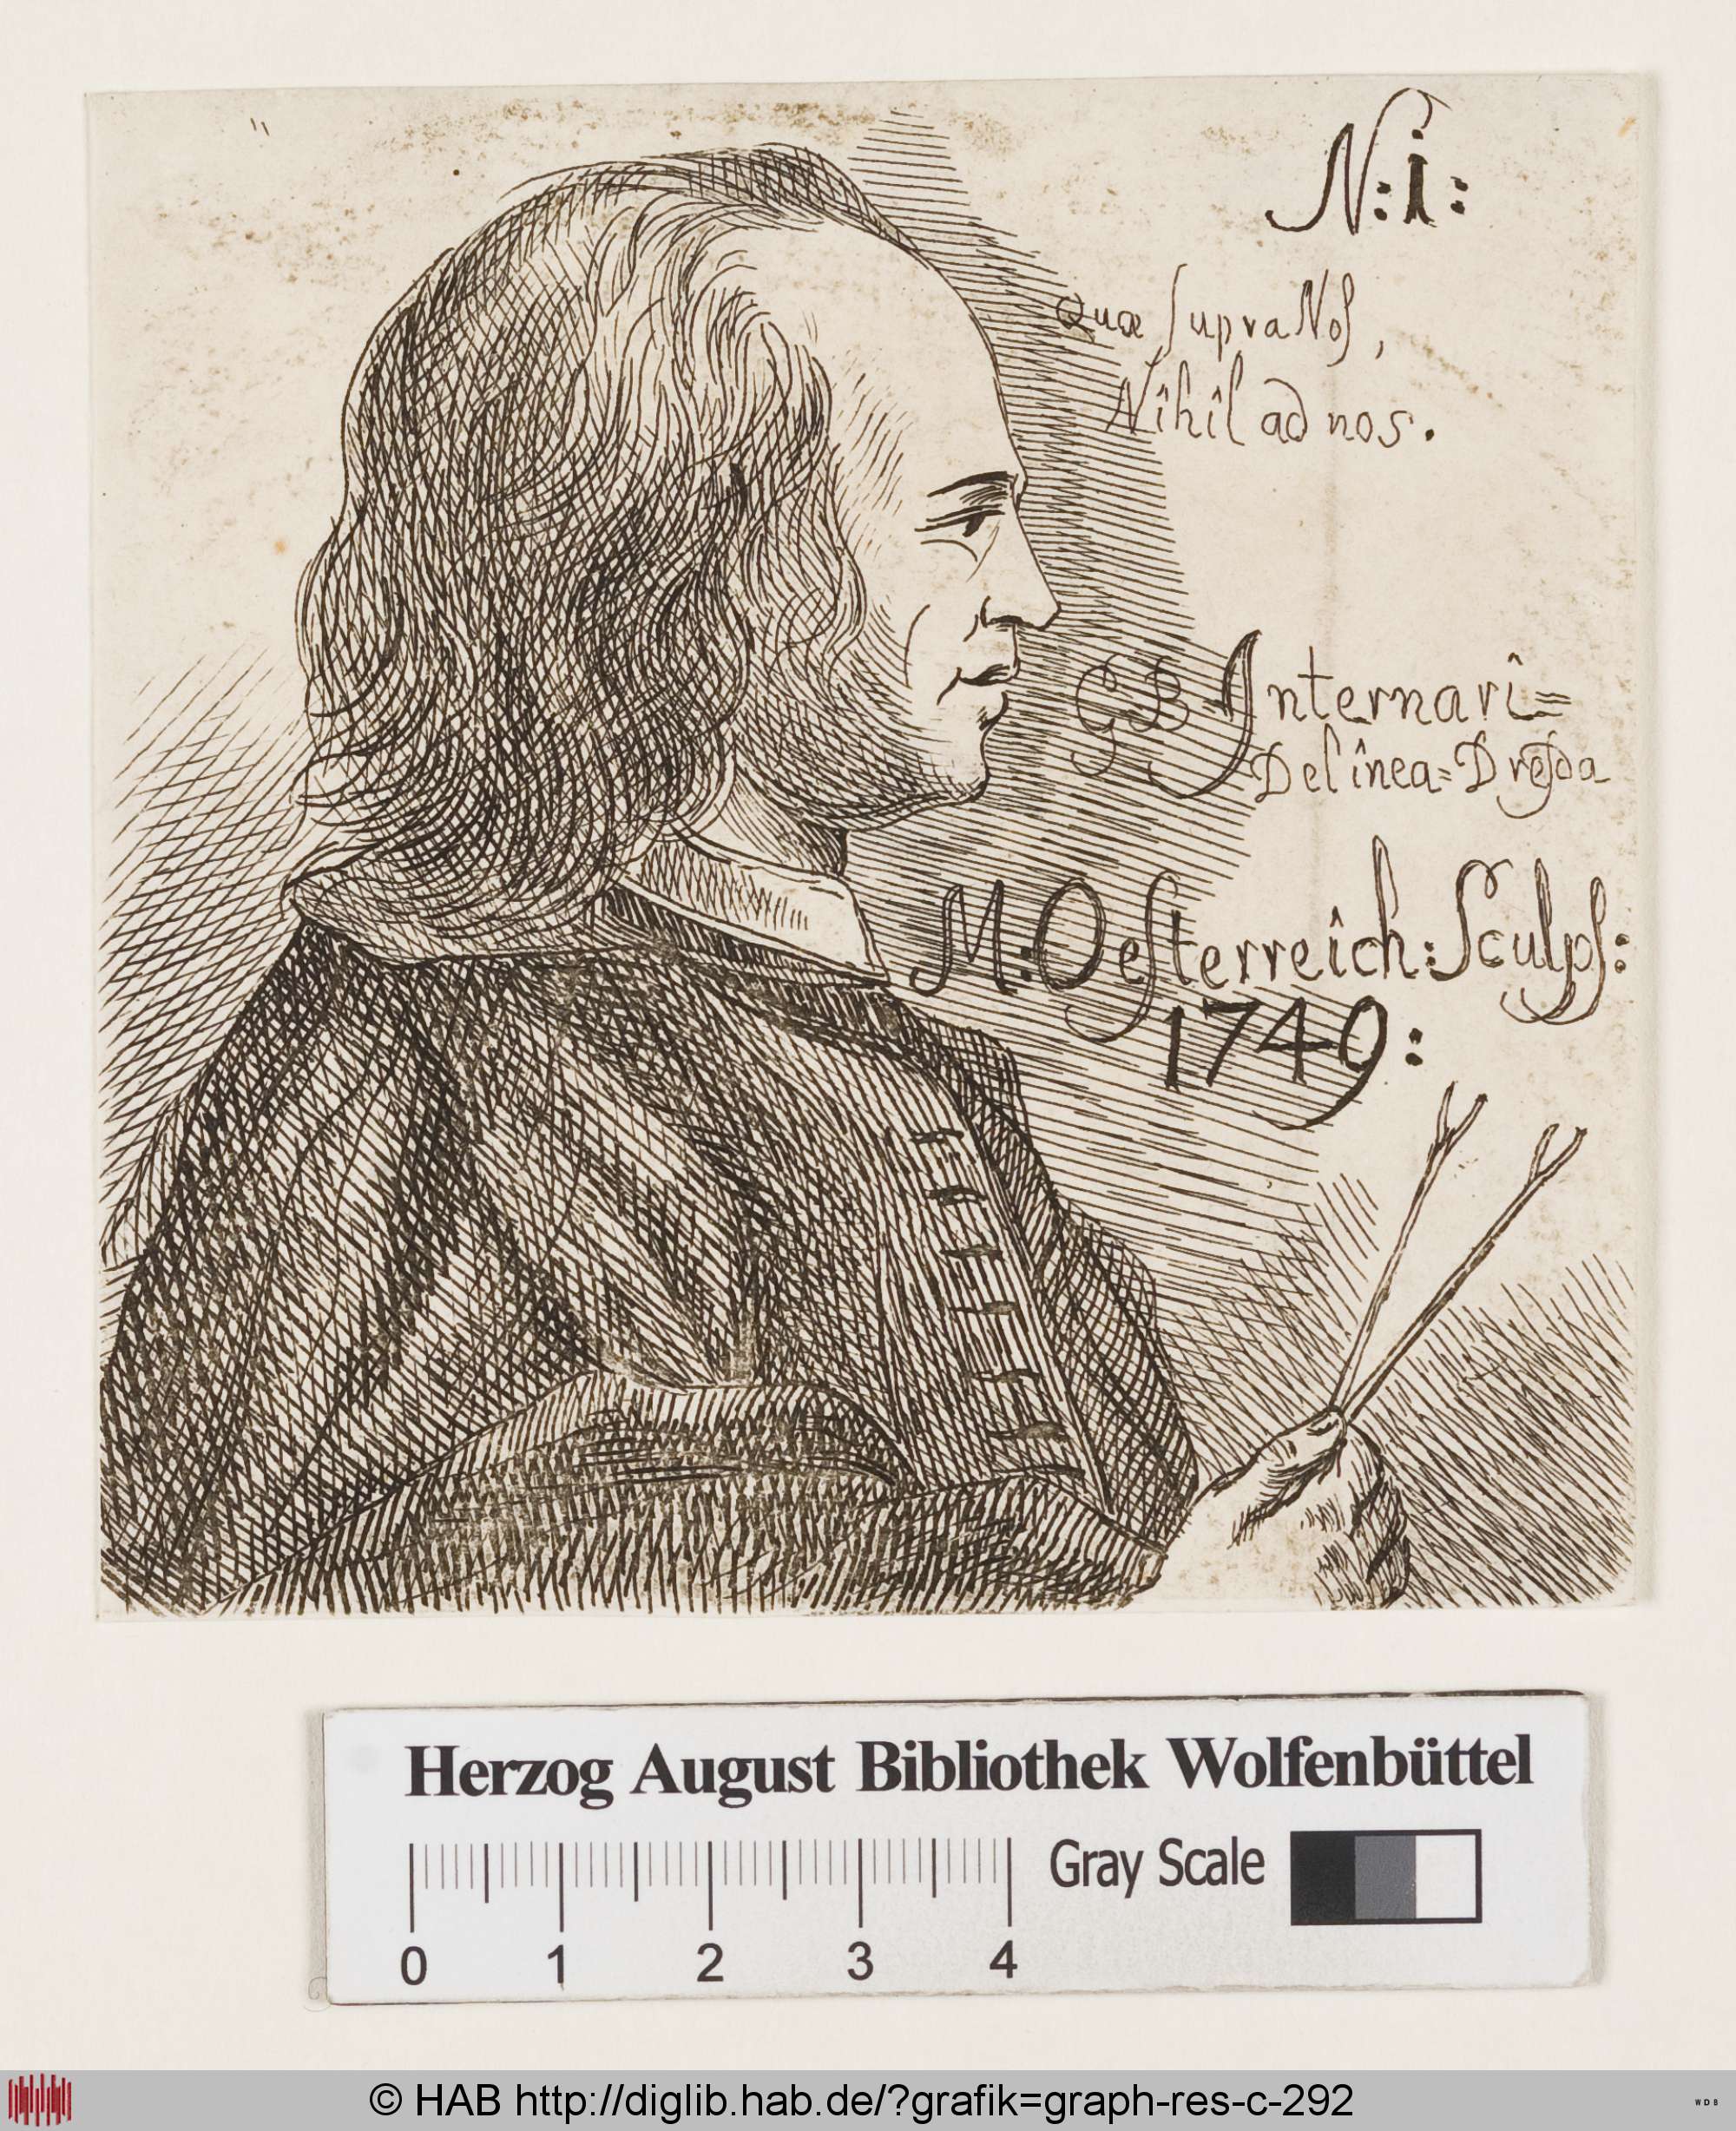 N:i:
Quæ ſupra Noſ,
Nîhîl ad nos.
GB Jnternarî=
Delînea= Dreſda
M: Oeſterreîch: Sculpſ:
1749:
Herzog August Bibliothek Wolfenbüttel
Gray Scale
0 1 2 3 4
© HAB http://diglib.hab.de/?grafik=graph-res-c-292
WDB